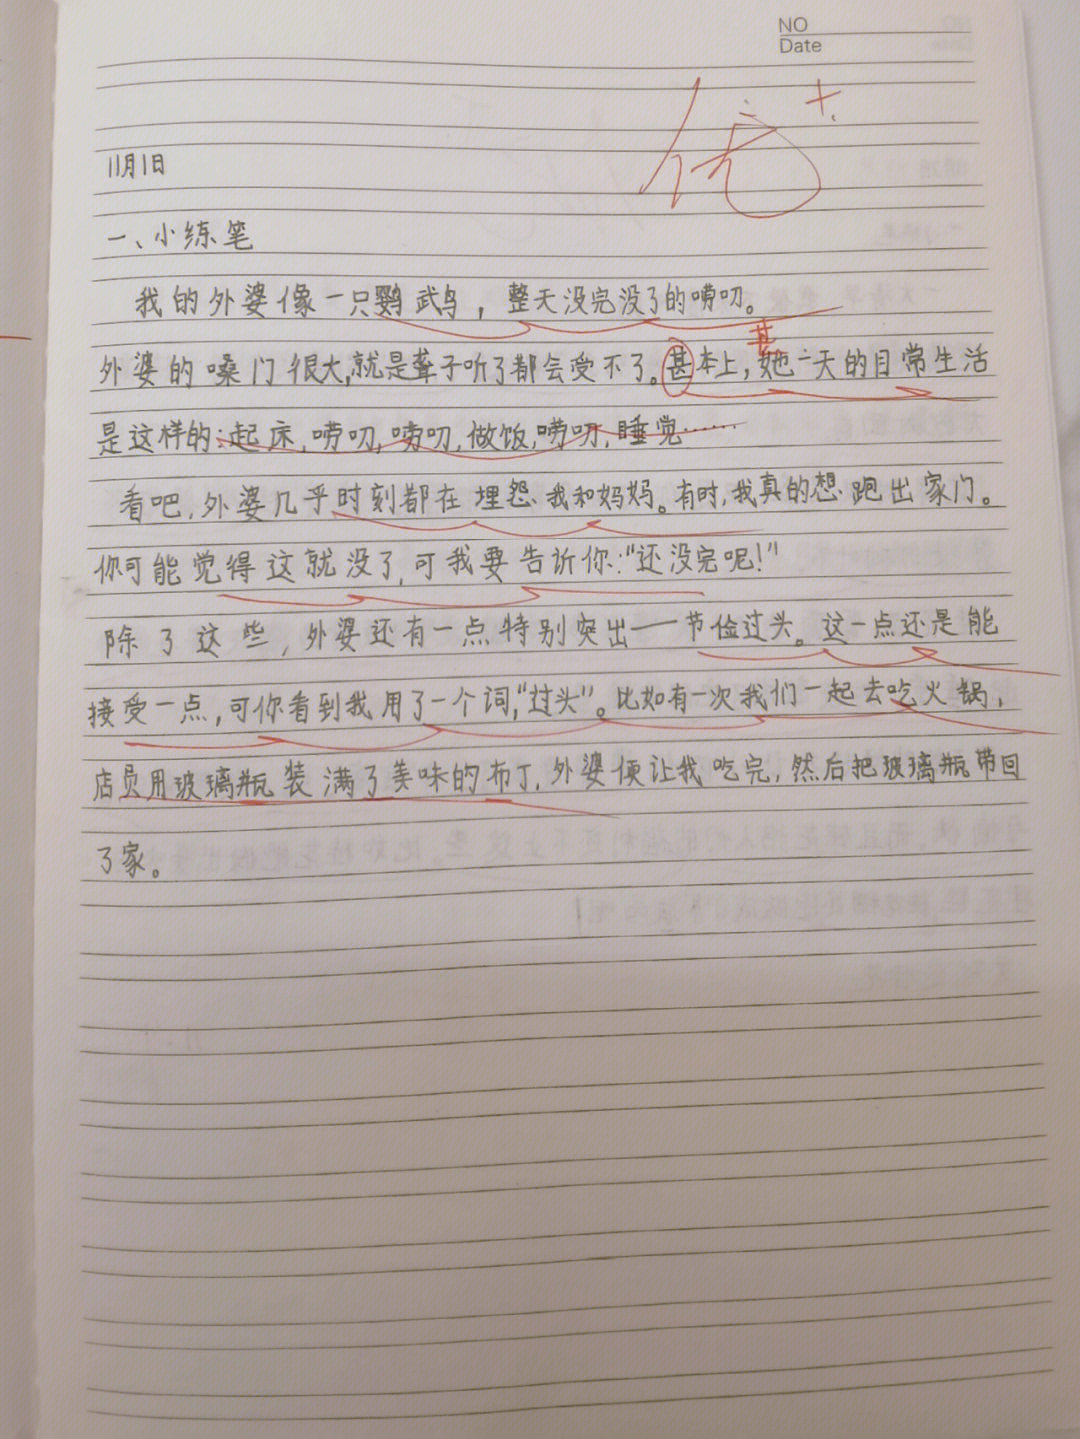 NO
Date
优+
11月1日
一、小练笔
我的外婆像一只鹦武鸟，整天没完没了的唠叨。
外婆的嗓门很大,就是聋子听了都会受不了。甚本上,她一天的日常生活
基
是这样的:起床,唠叨,唠叨,做饭,唠叨,睡觉……
看吧,外婆几乎时刻都在埋怨我和妈妈。有时,我真的想跑出家门。
你可能觉得这就没了,可我要告诉你:"还没完呢!"
除了这些,外婆还有一点特别突出——节俭过头。这一点还是能
接受一点,可你看到我用了一个词,"过头"。比如有一次我们一起去吃火锅,
店员用玻璃瓶装满了美味的布丁,外婆便让我吃完,然后把玻璃瓶带回
了家。